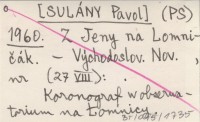 [SULÁNY Pavol] (PS)
1960. Z Jeny na Lomni-
čák. – Východoslov. Nov.,
nr (27 VIII):
Koronograf w obserwa-
torium na Łomnicy